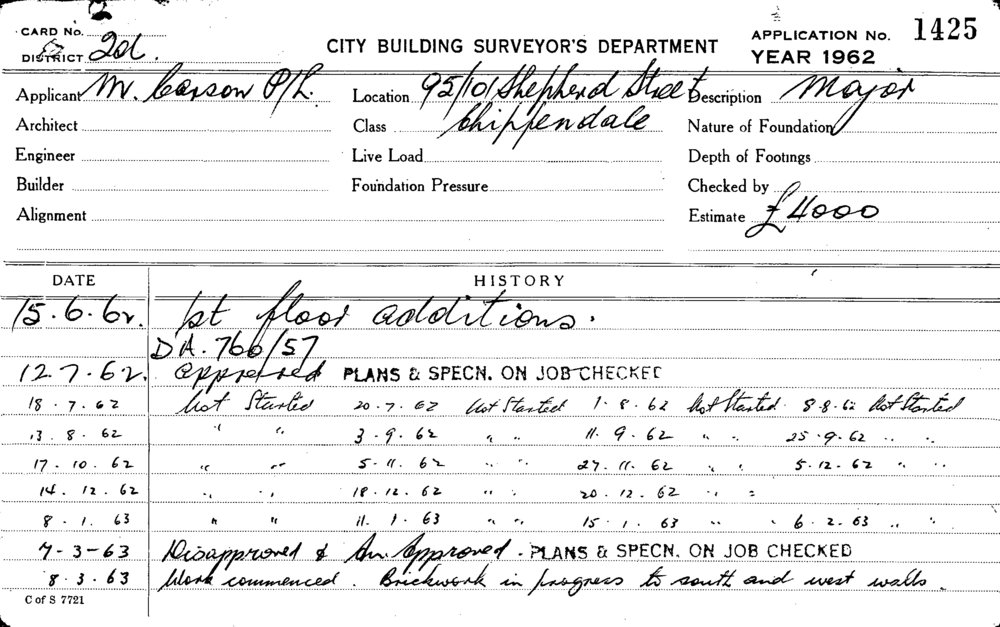 CARD No.
DISTRICT 2d.
CITY BUILDING SURVEYOR'S DEPARTMENT
APPLICATION No. 1425
YEAR 1962
Applicant M. Carson P/L. Location 95/101 Shepherd Street Description Major
Architect Class Chippendale Nature of Foundation
Engineer Live Load Depth of Footings
Builder Foundation Pressure Checked by
Alignment Estimate £4000
DATE HISTORY
15.6.62. 1st floor additions.
DA. 766/57
12.7.62. Approved PLANS & SPECN. ON JOB CHECKED
18.7.62 Not Started 20.7.62 Not Started 1.8.62 Not Started 8.8.62 Not Started
13.8.62 " " 3.9.62 " " 11.9.62 " " 25.9.62 " "
17.10.62 " " 5.11.62 " " 27.11.62 " " 5.12.62 " "
14.12.62 " " 18.12.62 " " 20.12.62 " "
8.1.63 " " 11.1.63 " " 15.1.63 " " 6.2.63 " "
7-3-63 Disapproved & Approved - PLANS & SPECN. ON JOB CHECKED
8.3.63 Work commenced. Brickwork in progress to south and west walls.
C of S 7721